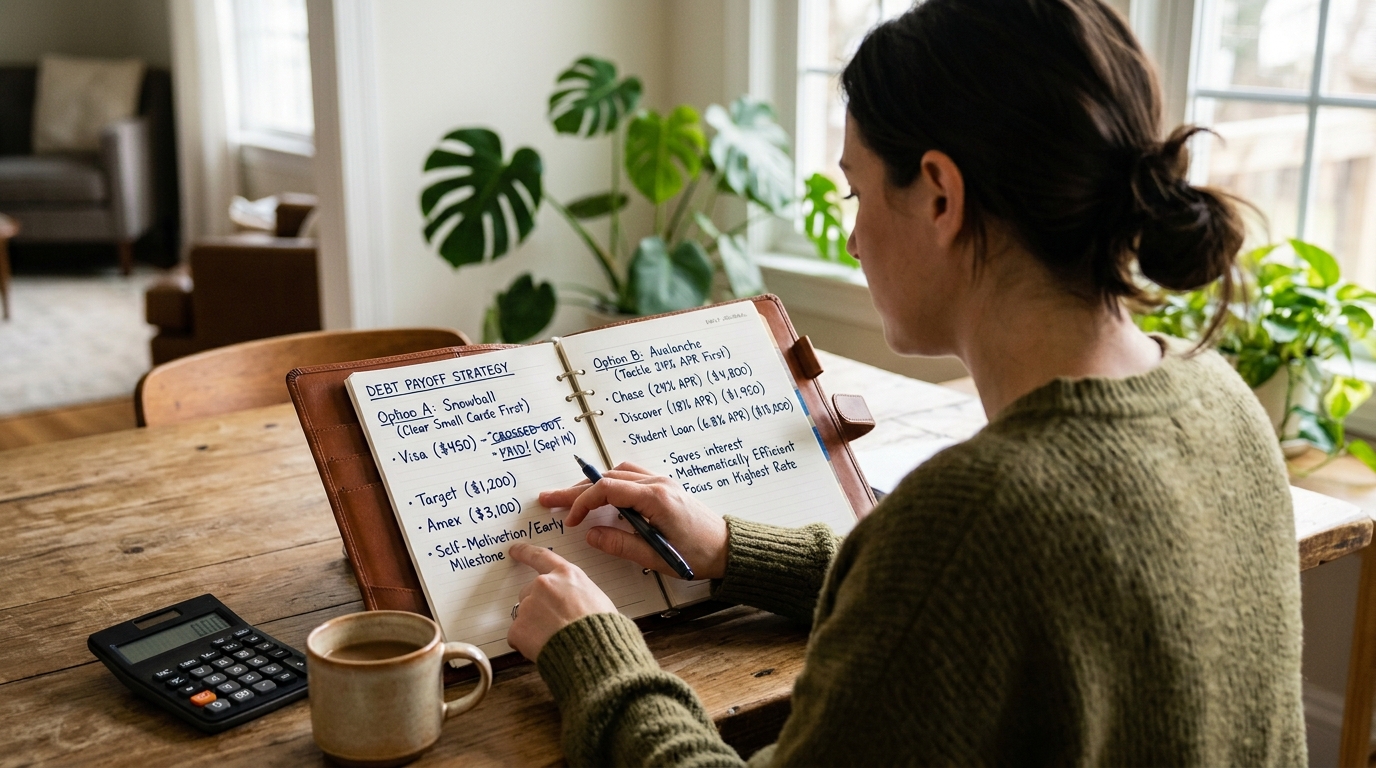 DEBT PAYOFF STRATEGY
Option A: Snowball
(Clear Small Cards First)
• Visa ($450) - CROSSED OUT.
- PAID! (Sept 14)
• Target ($1,200)
• Amex ($3,100)
• Self-Motivation/Early
Milestone
Option B: Avalanche
(Tackle 24% APR First)
• Chase (24% APR) ($4,800)
• Discover (18% APR) ($1,950)
• Student Loan (6.8% APR) ($15,000)
• Saves interest
• Mathematically Efficient
Focus on Highest Rate